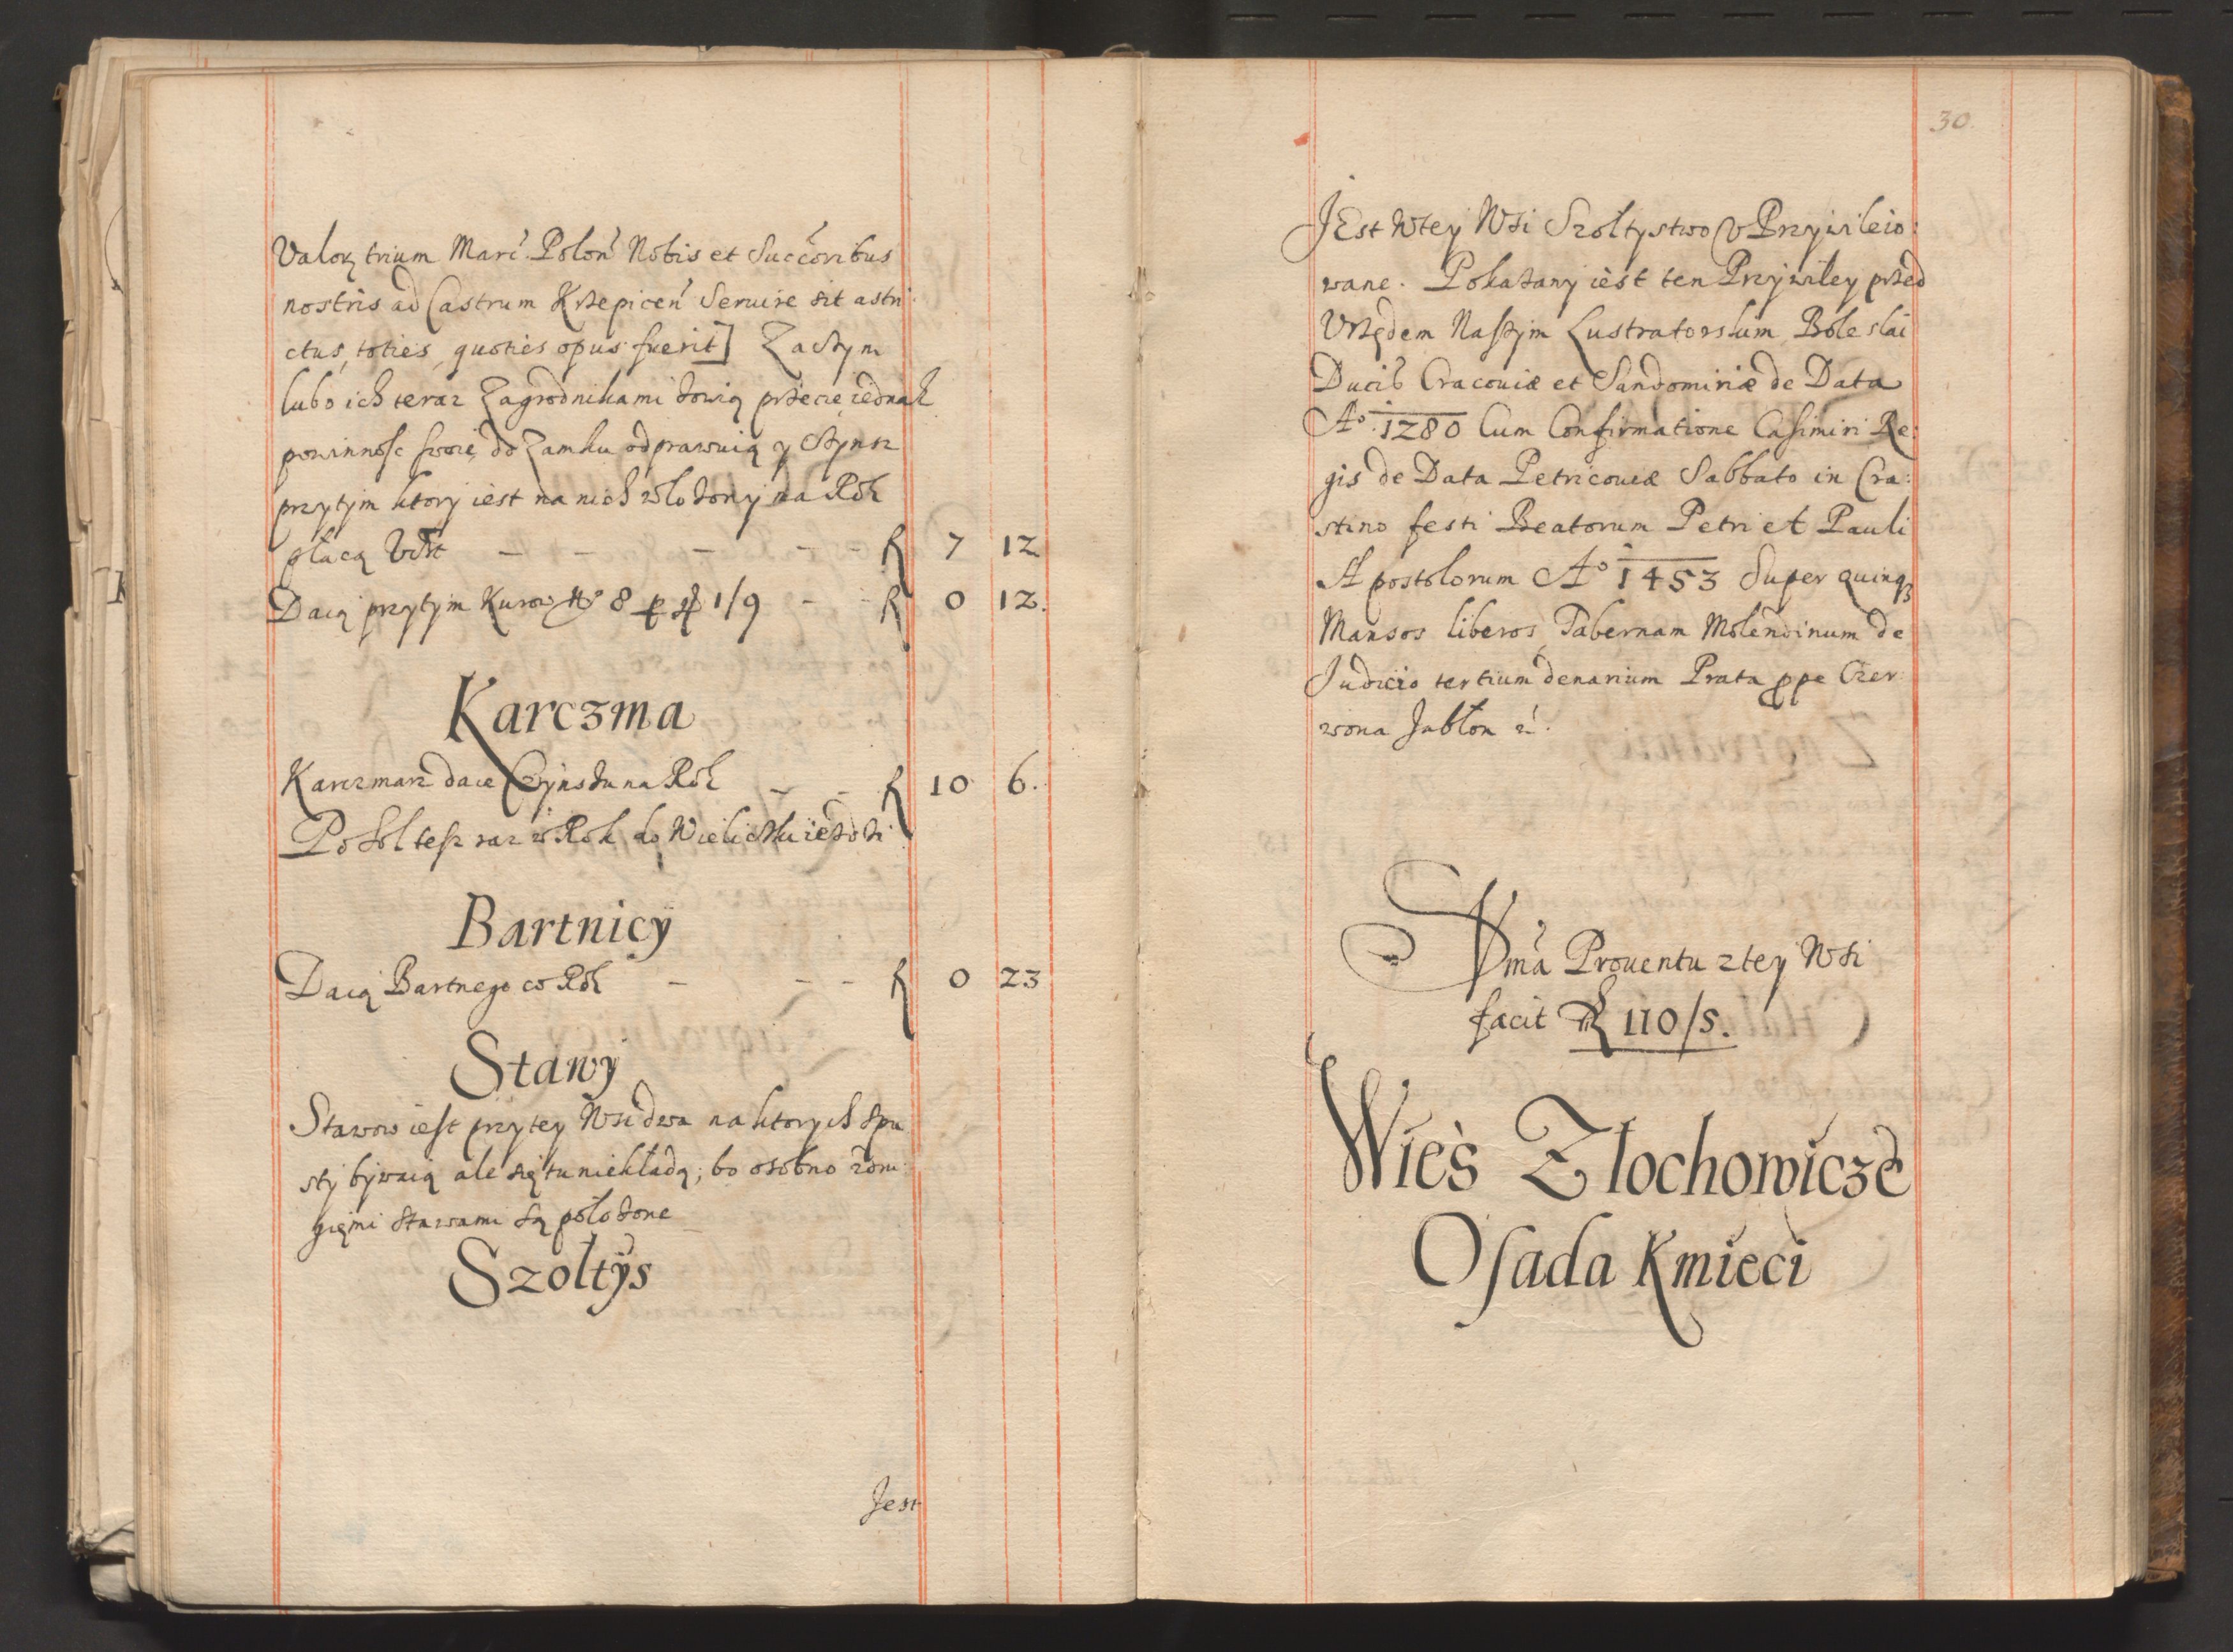 Valorē trium Marc̃. Polon̄ Nobis et Succoribus
nostris ad Castrum Krzepicen̄ Seruire sit astri
ctus, toties, quoties opus fuerit] Zaczym
lubo ich teraz Zagrodnikami zowią przecie iednak
powinnosc swoię do Zamku odprawuią y Czynsz
przytym ktory iest na nich włożony na Rok
płacą
7 12
Daią przytym Kurow No 8 1/9 0 12.
Karczma
Karczmarz daie Czynszu na Rok 10 6.
Po Sol tesz raz w Rok do Wieliczki iezdzi
Bartnicÿ
Daią Bartnego co Rok 0 23
Stawÿ
Stawow iest przytey Wsi dwa na ktorych Spu
sty bywaią ale się tu niekładą; bo osobno z dru
giemi Stawami są położone
Szołtÿs
Jest
30.
JEst wtey Wsi Szołtystwo Vprzywileio:
wane. Pokazany iest ten Przywiley przed
Vrzędem Naszym Lustratorskim Boleslai
Ducis Cracouiæ et Sandomiriæ de Data
Ao. 1280 Cum Confirmatione Casimiri Re:
gis de Data Petricouiæ Sabbato in Cra:
stino festi Beatorum Petri et Pauli
Apostolorum Ao 1453 Super quinqȝ
Mansos liberos, Tabernam Molendinum de
Judicio tertium denarium Prata ppe Czer:
wona Jabłon
Sũma Prouentu z tey Wsi
facit 110/5.
Wieś Złochowicze
Osada Kmieci